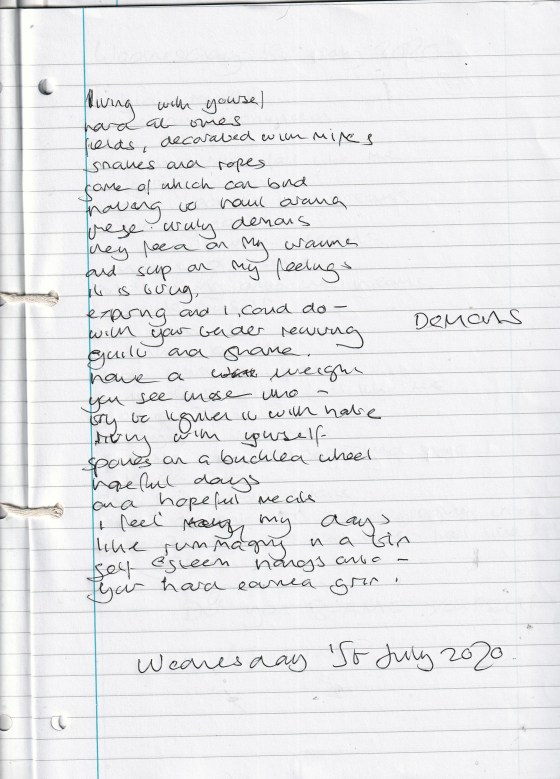 living with yourself
hard at times
fields, decorated with mines
snakes and ropes
some of which can bind
having to haul around
these unruly demons
they feed on my trauma
and sup on my feelings
it is tiring,
and I could do –
with your tender reviving
guilt and shame.
have a weight
you see those who –
try to lighten it with hate
living with yourself
spokes on a buckled wheel
hopeful days
and hopeful meals
I feel my days
like rummaging in a bin
self esteem hangs onto –
your hard earned grin.
DEMONS
Wednesday 1st July 2020